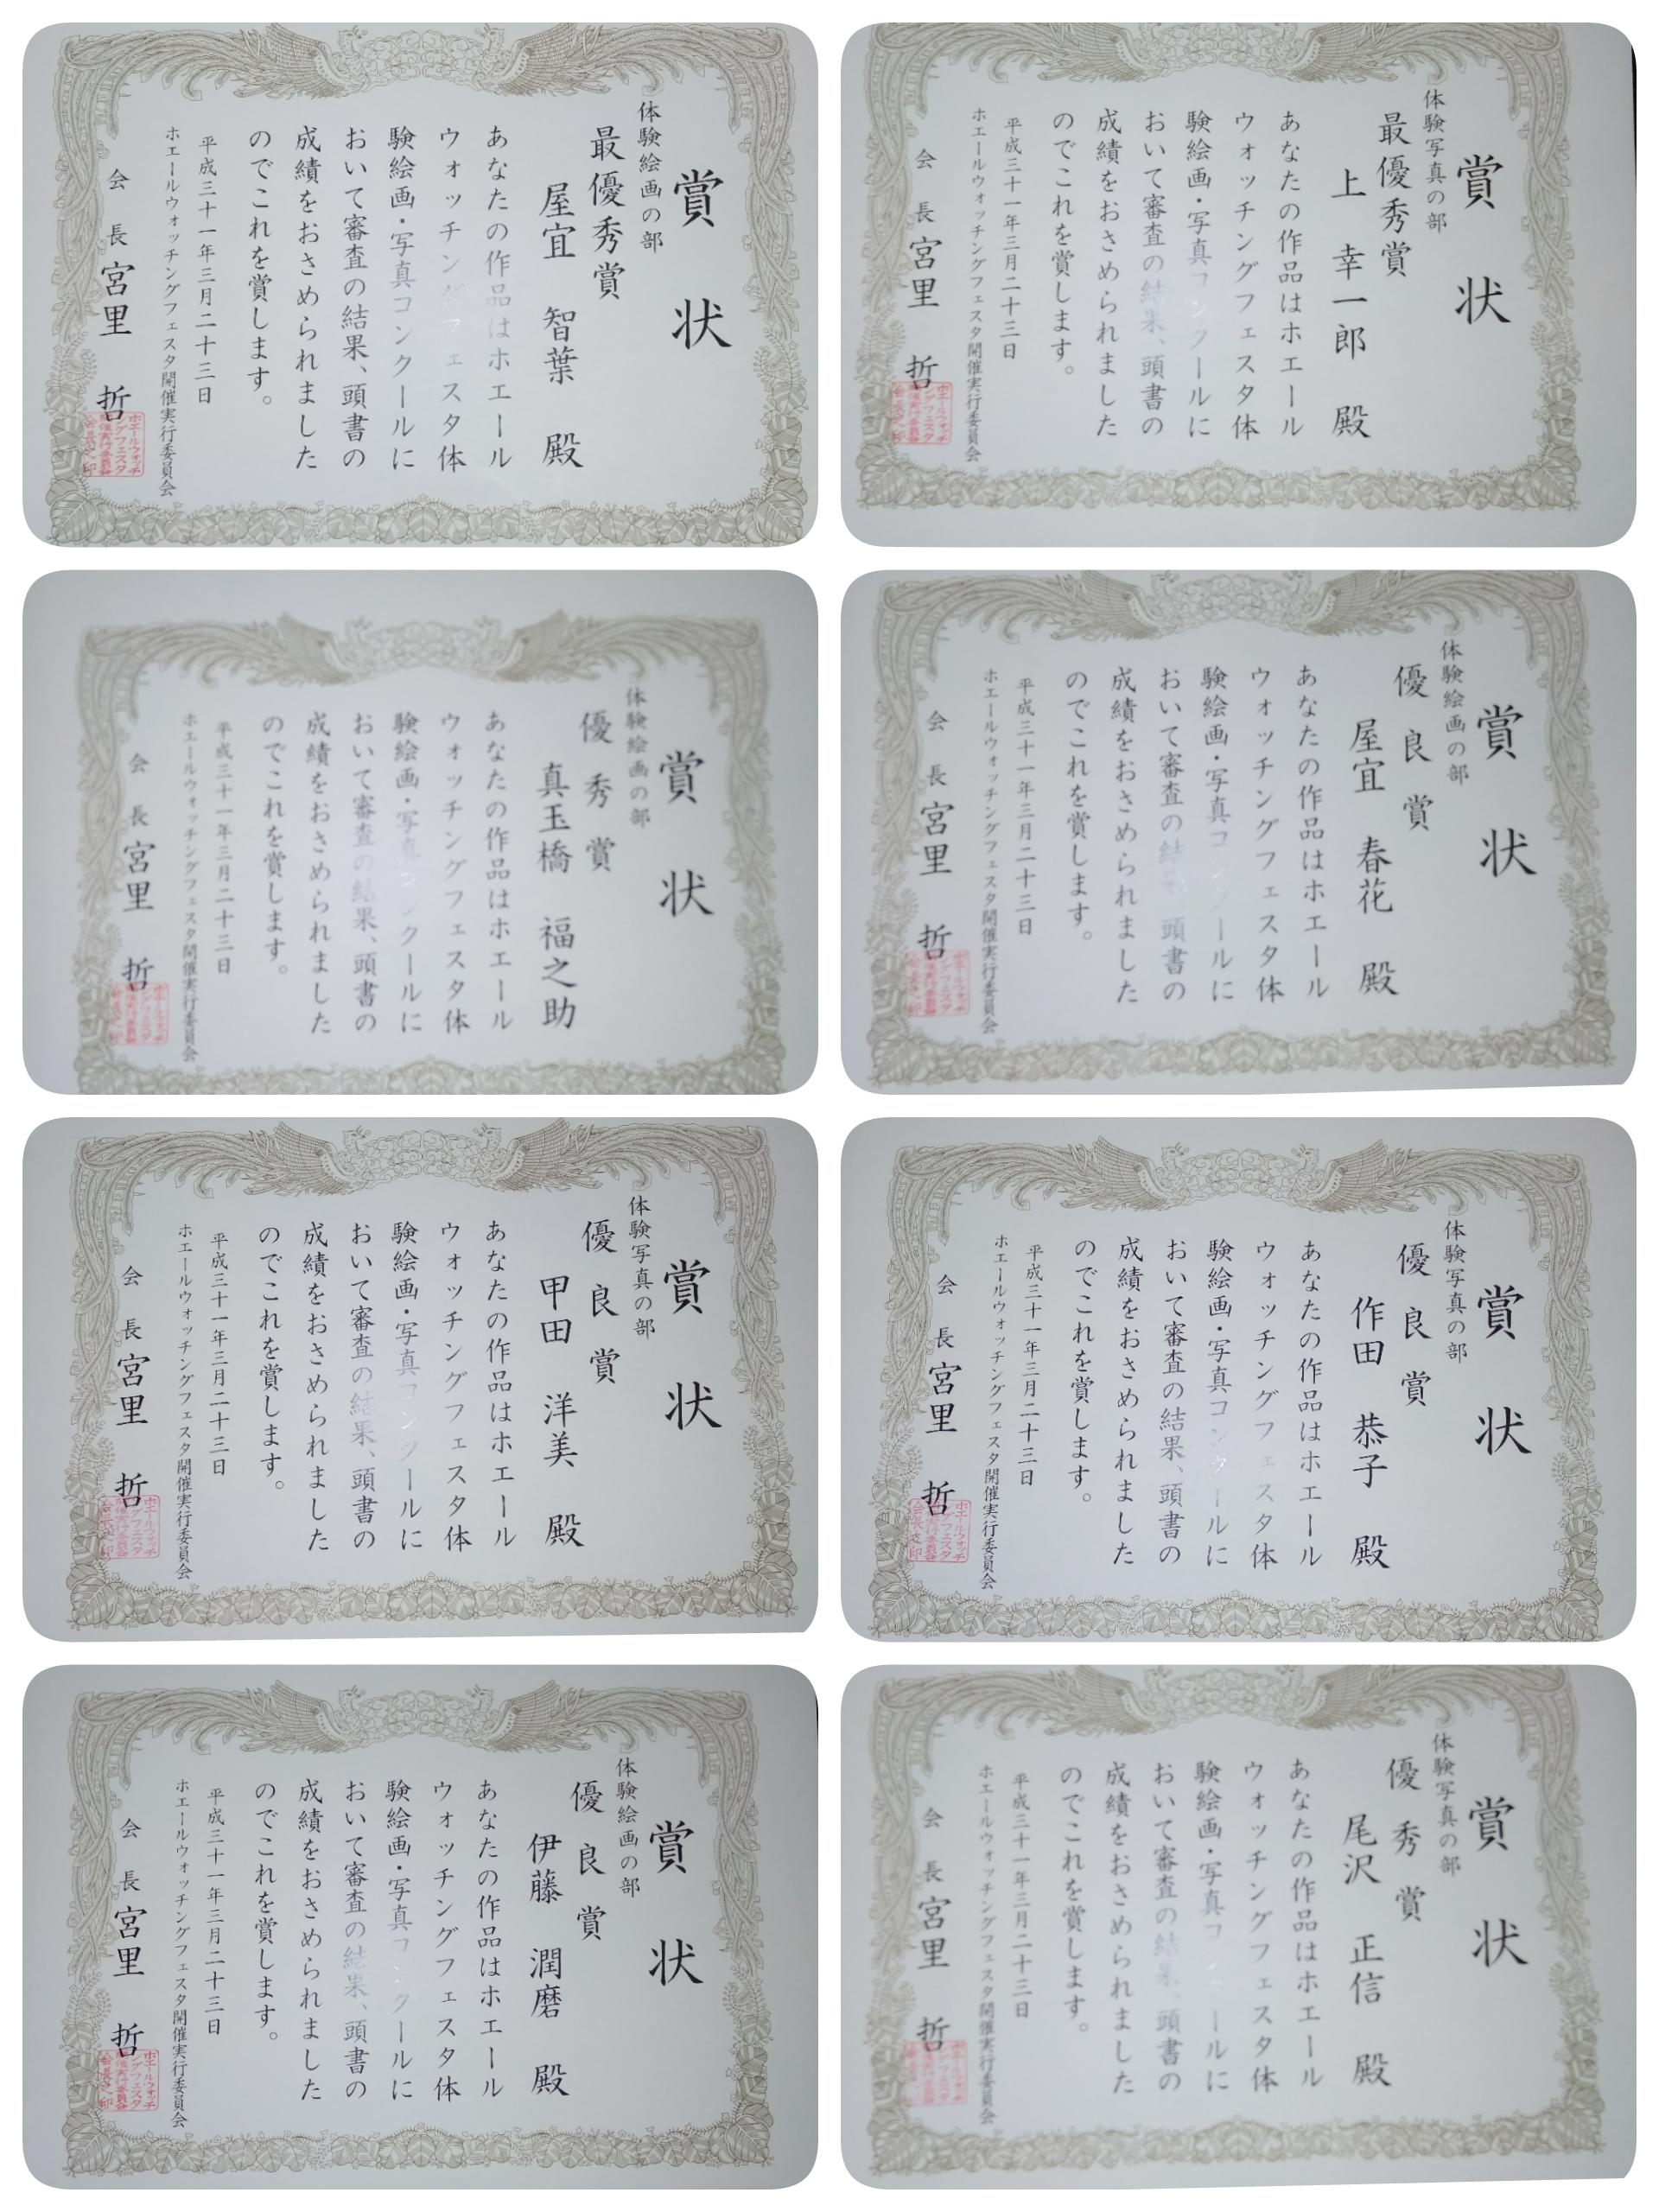 賞状
体験絵画の部
最優秀賞
屋宜 智葉 殿
あなたの作品はホエール
ウォッチングフェスタ体
験絵画・写真コンクールに
おいて審査の結果、頭書の
成績をおさめられました
のでこれを賞します。
平成三十一年三月二十三日
ホエールウォッチングフェスタ開催実行委員会
会 長 宮里 哲
賞状
体験写真の部
最優秀賞
上 幸一郎 殿
あなたの作品はホエール
ウォッチングフェスタ体
験絵画・写真コンクールに
おいて審査の結果、頭書の
成績をおさめられました
のでこれを賞します。
平成三十一年三月二十三日
ホエールウォッチングフェスタ開催実行委員会
会 長 宮里 哲
賞状
体験絵画の部
優秀賞
真玉橋 福之助
あなたの作品はホエール
ウォッチングフェスタ体
験絵画・写真コンクールに
おいて審査の結果、頭書の
成績をおさめられました
のでこれを賞します。
平成三十一年三月二十三日
ホエールウォッチングフェスタ開催実行委員会
会 長 宮里 哲
賞状
体験絵画の部
優良賞
屋宜 春花 殿
あなたの作品はホエール
ウォッチングフェスタ体
験絵画・写真コンクールに
おいて審査の結果、頭書の
成績をおさめられました
のでこれを賞します。
平成三十一年三月二十三日
ホエールウォッチングフェスタ開催実行委員会
会 長 宮里 哲
賞状
体験写真の部
優良賞
甲田 洋美 殿
あなたの作品はホエール
ウォッチングフェスタ体
験絵画・写真コンクールに
おいて審査の結果、頭書の
成績をおさめられました
のでこれを賞します。
平成三十一年三月二十三日
ホエールウォッチングフェスタ開催実行委員会
会 長 宮里 哲
賞状
体験写真の部
優良賞
作田 恭子 殿
あなたの作品はホエール
ウォッチングフェスタ体
験絵画・写真コンクールに
おいて審査の結果、頭書の
成績をおさめられました
のでこれを賞します。
平成三十一年三月二十三日
ホエールウォッチングフェスタ開催実行委員会
会 長 宮里 哲
賞状
体験絵画の部
優良賞
伊藤 潤磨 殿
あなたの作品はホエール
ウォッチングフェスタ体
験絵画・写真コンクールに
おいて審査の結果、頭書の
成績をおさめられました
のでこれを賞します。
平成三十一年三月二十三日
ホエールウォッチングフェスタ開催実行委員会
会 長 宮里 哲
賞状
体験写真の部
優秀賞
尾沢 正信 殿
あなたの作品はホエール
ウォッチングフェスタ体
験絵画・写真コンクールに
おいて審査の結果、頭書の
成績をおさめられました
のでこれを賞します。
平成三十一年三月二十三日
ホエールウォッチングフェスタ開催実行委員会
会 長 宮里 哲